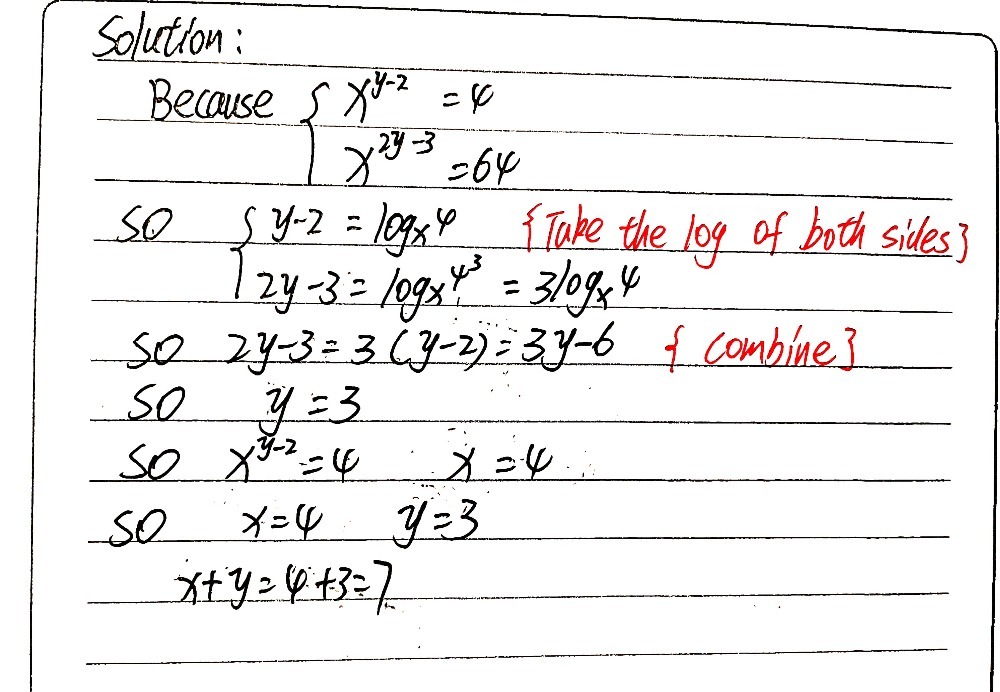 Solution:
Because { x^{y-2} = 4
x^{2y-3} = 64
so { y-2 = log_x 4 {Take the log of both sides}
2y-3 = log_x 4^3 = 3log_x 4
so 2y-3 = 3(y-2) = 3y-6 {combine}
so y = 3
so x^{y-2} = 4 x = 4
so x=4 y=3
x+y=4+3=7